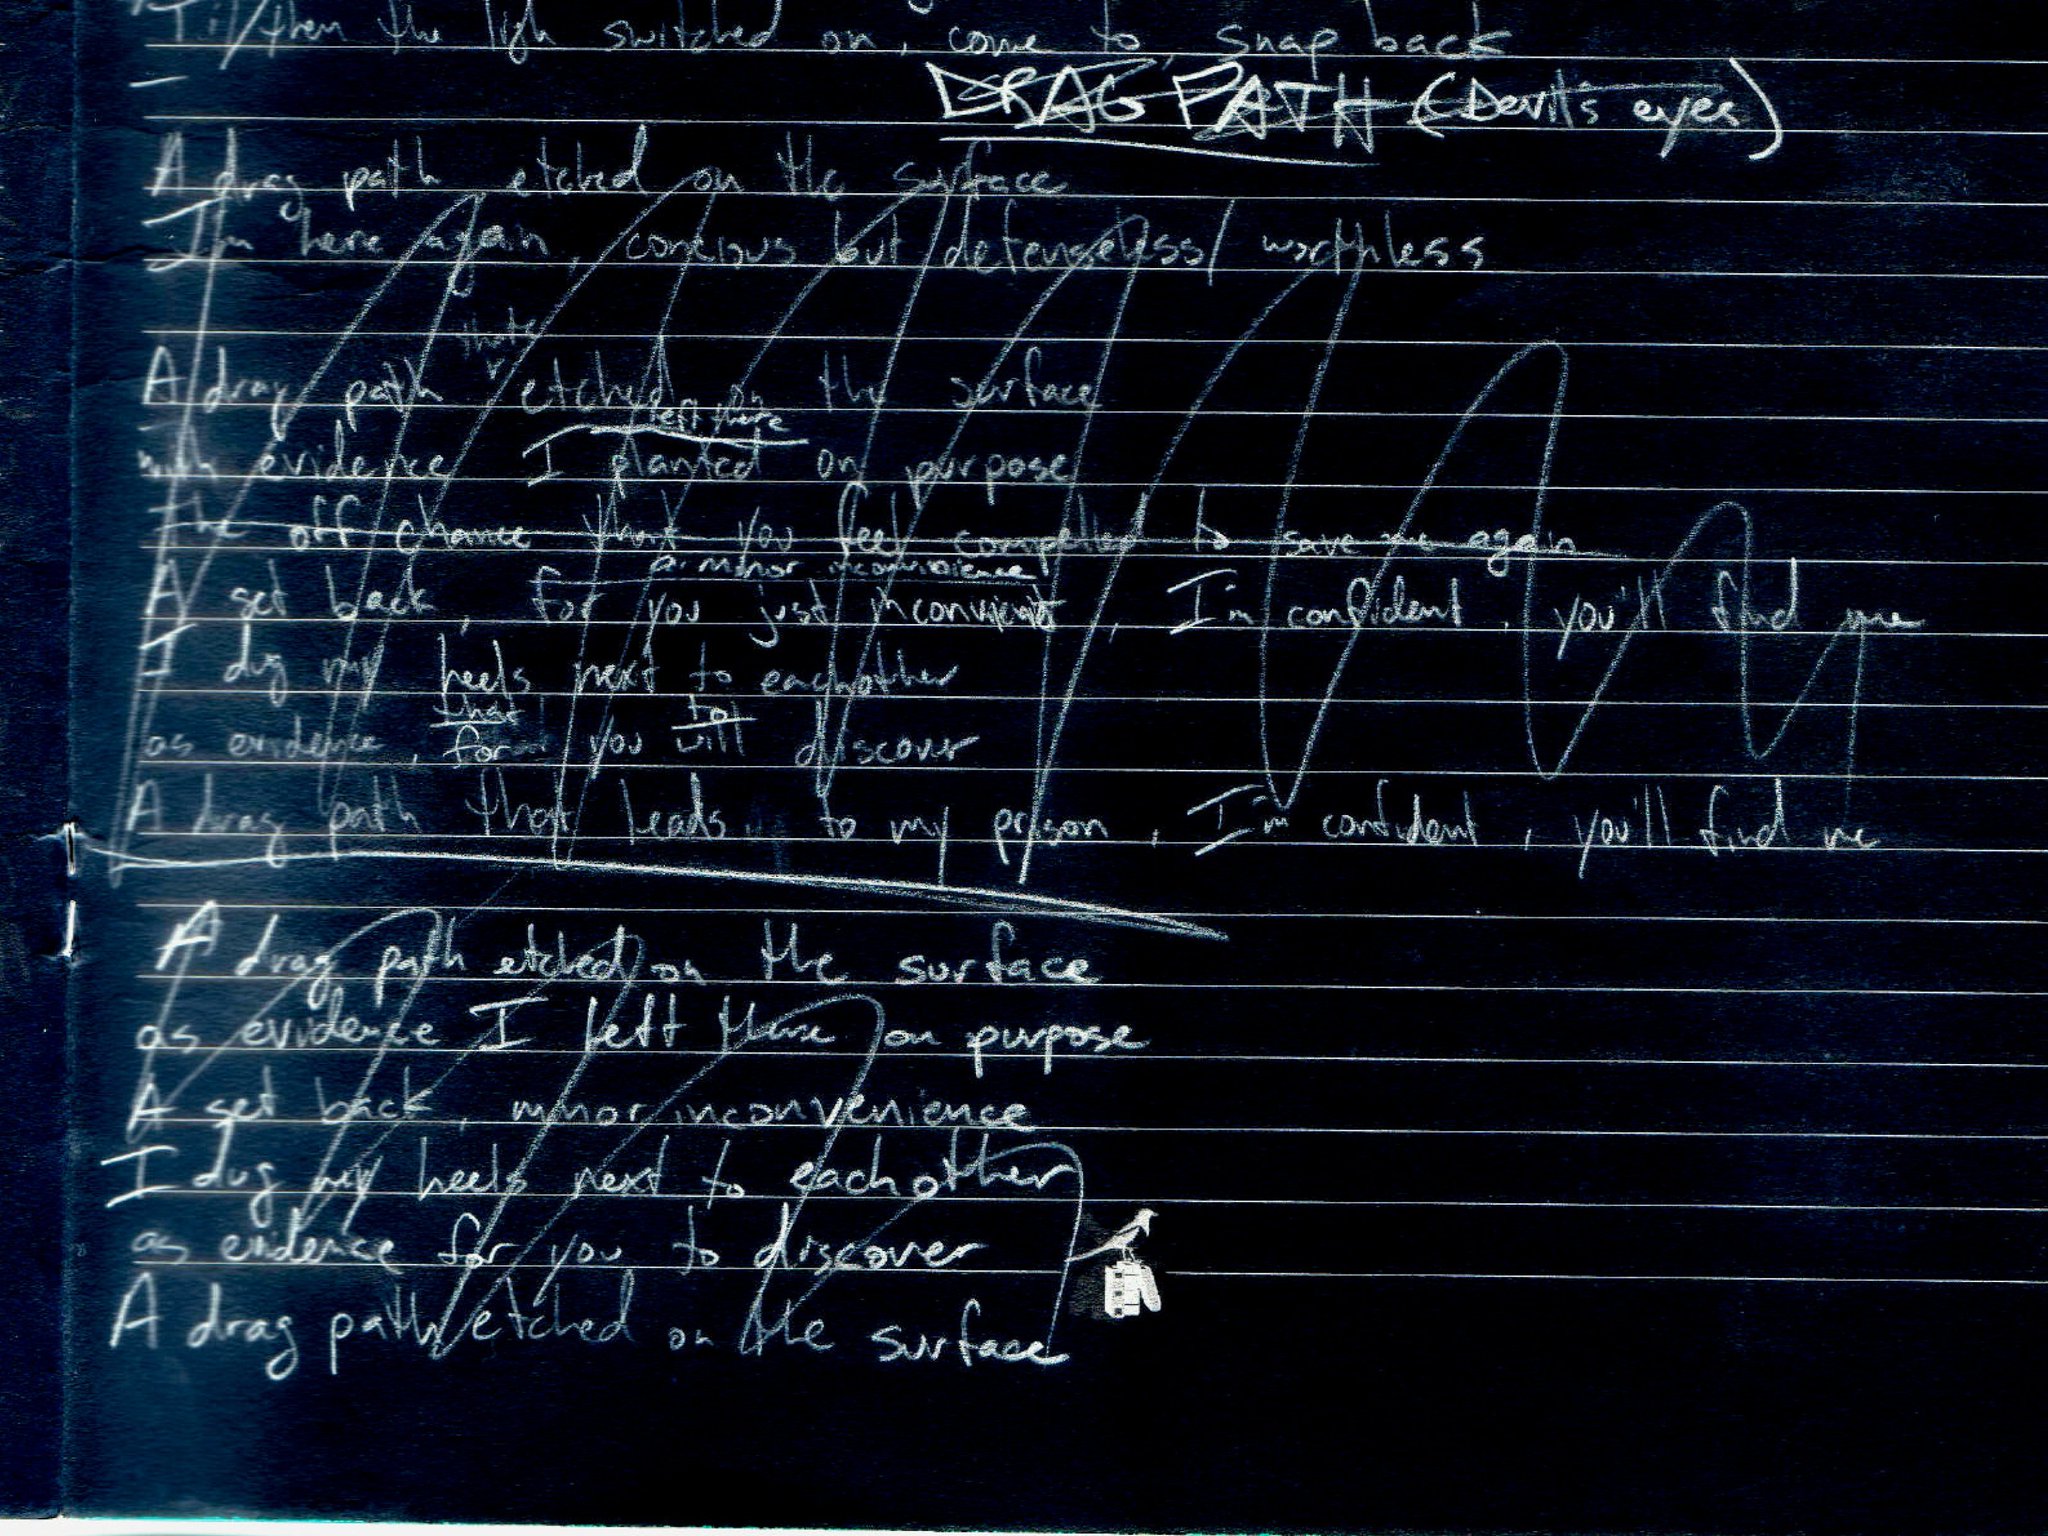 Til/then the ligh switched on, come to, snap back
DRAG PATH (Devil's eyes)
A drag path etched on the surface
I'm here again, concious but defenseless/ worthless
that's
A drag path etched on the surface
left there
with evidence I planted on purpose
The off chance that you feel compelled to save me again
a minor inconvinience
A set back, for you just inconvinient, I'm confident, you'll find me
I dug my heels next to eachother
that to
as evidence, for you will discover
A drag path that leads to my prison, I'm confident, you'll find me
A drag path etched on the surface
as evidence I left there on purpose
A set back, minor inconvenience
I dug my heels next to eachother
as evidence for you to discover
A drag path etched on the surface